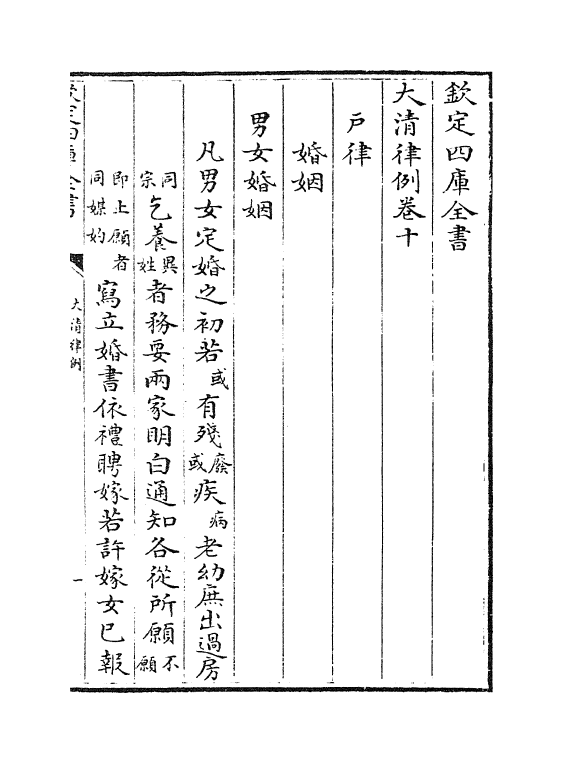 欽定四庫全書
大清律例卷十
戶律
婚姻
男女婚姻
凡男女定婚之初若或有殘廢或疾病老幼庶出過房
同宗乞養異姓者務要兩家明白通知各從所願不願
即止願者同媒妁寫立婚書依禮聘嫁若許嫁女已報
欽定四庫全書
大清律例
一